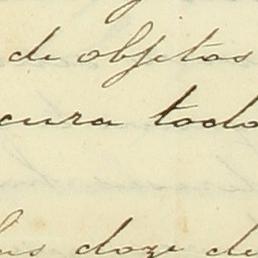 de objetos
cura todo
las doze de